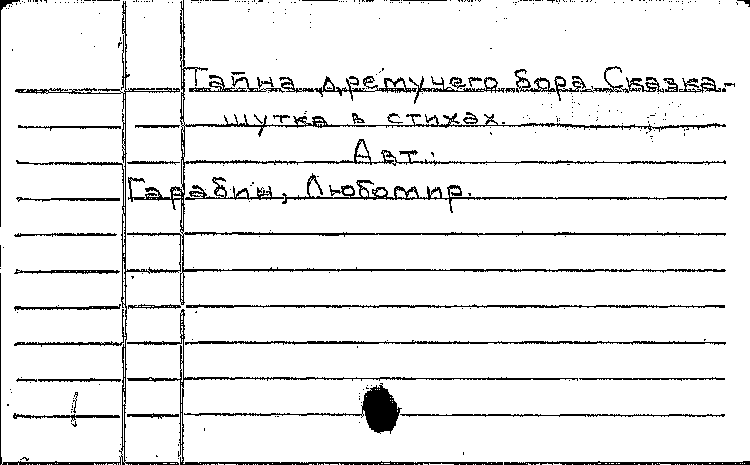 Тайна дремучего бора Сказка-
шутка в стихах.
Авт.:
Гарабин, Любомир.